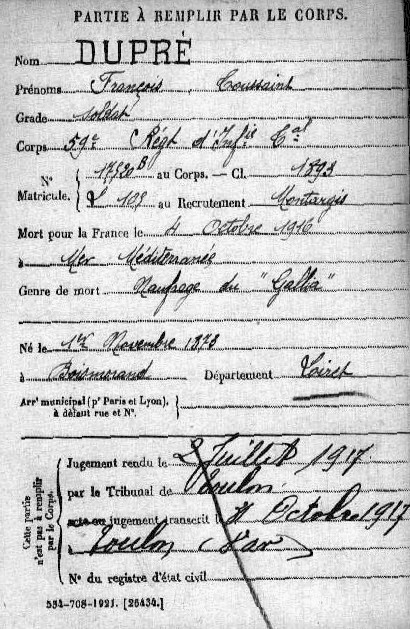 PARTIE À REMPLIR PAR LE CORPS.
Nom DUPRÉ
Prénoms François Toussaint
Grade soldat
Corps 59e Régt d'Infie Cal
N° Matricule. { 17520 B au Corps. — Cl. 1893
105 au Recrutement Montargis
Mort pour la France le 4 Octobre 1916
à Mer Méditerranée
Genre de mort Naufrage du "Gallia"
Né le 1er Novembre 1873
à Boismorand Département Loiret
Arrt municipal (pr Paris et Lyon),
à défaut rue et N°.
Cette partie n'est pas à remplir par le Corps.
Jugement rendu le 2 Juillet 1917
par le Tribunal de Toulon
acte ou jugement transcrit le 11 Octobre 1917
à Toulon Var
N° du registre d'état civil
534-708-1921. [26434.]